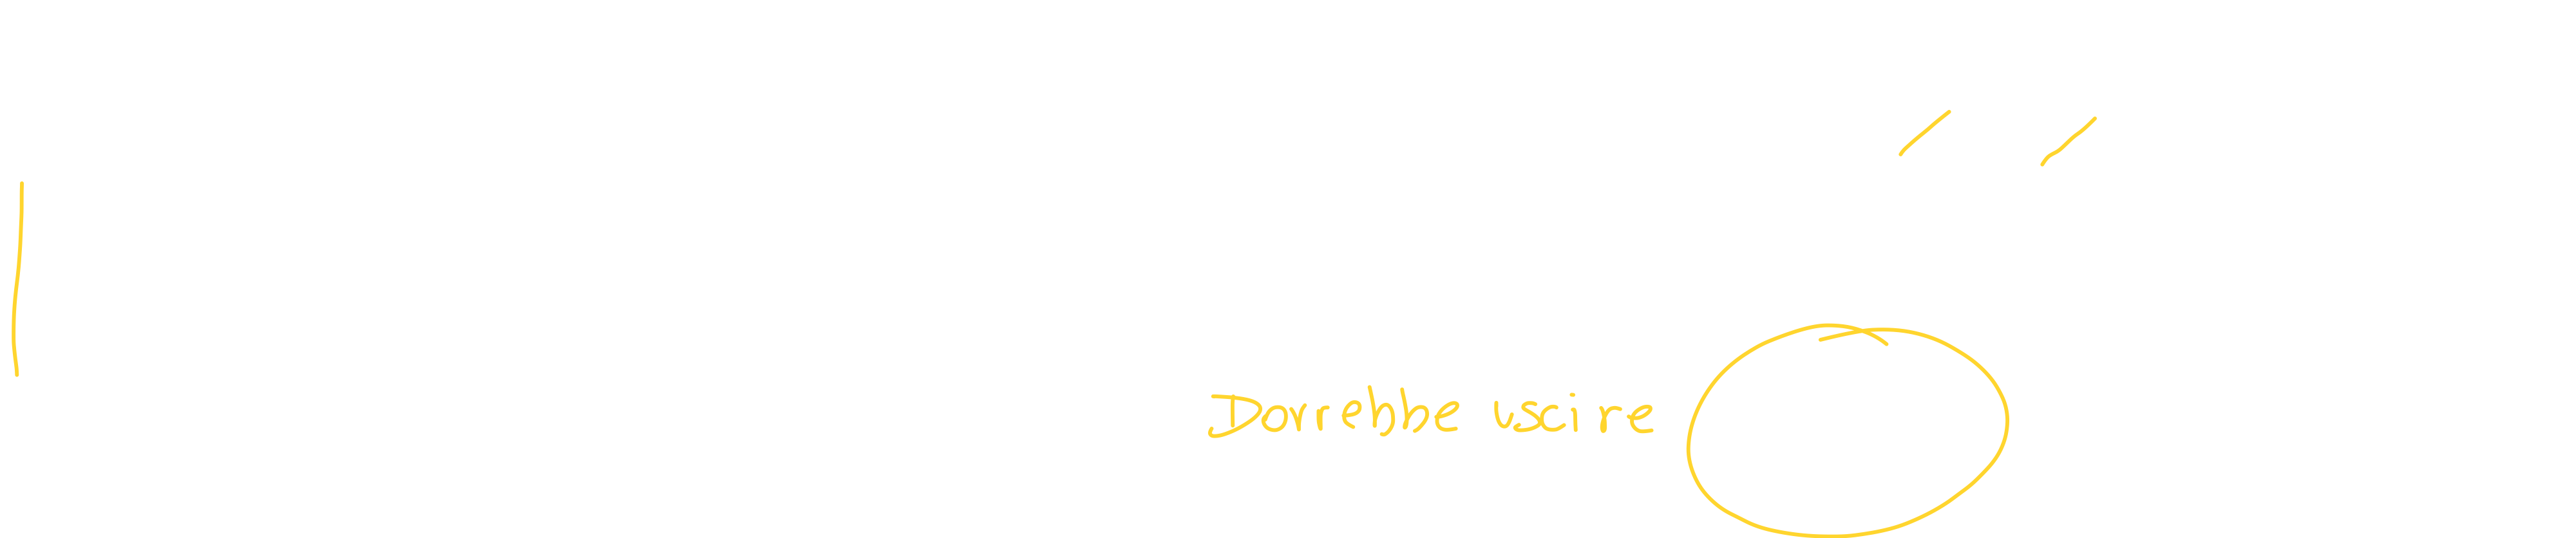 Dovrebbe uscire